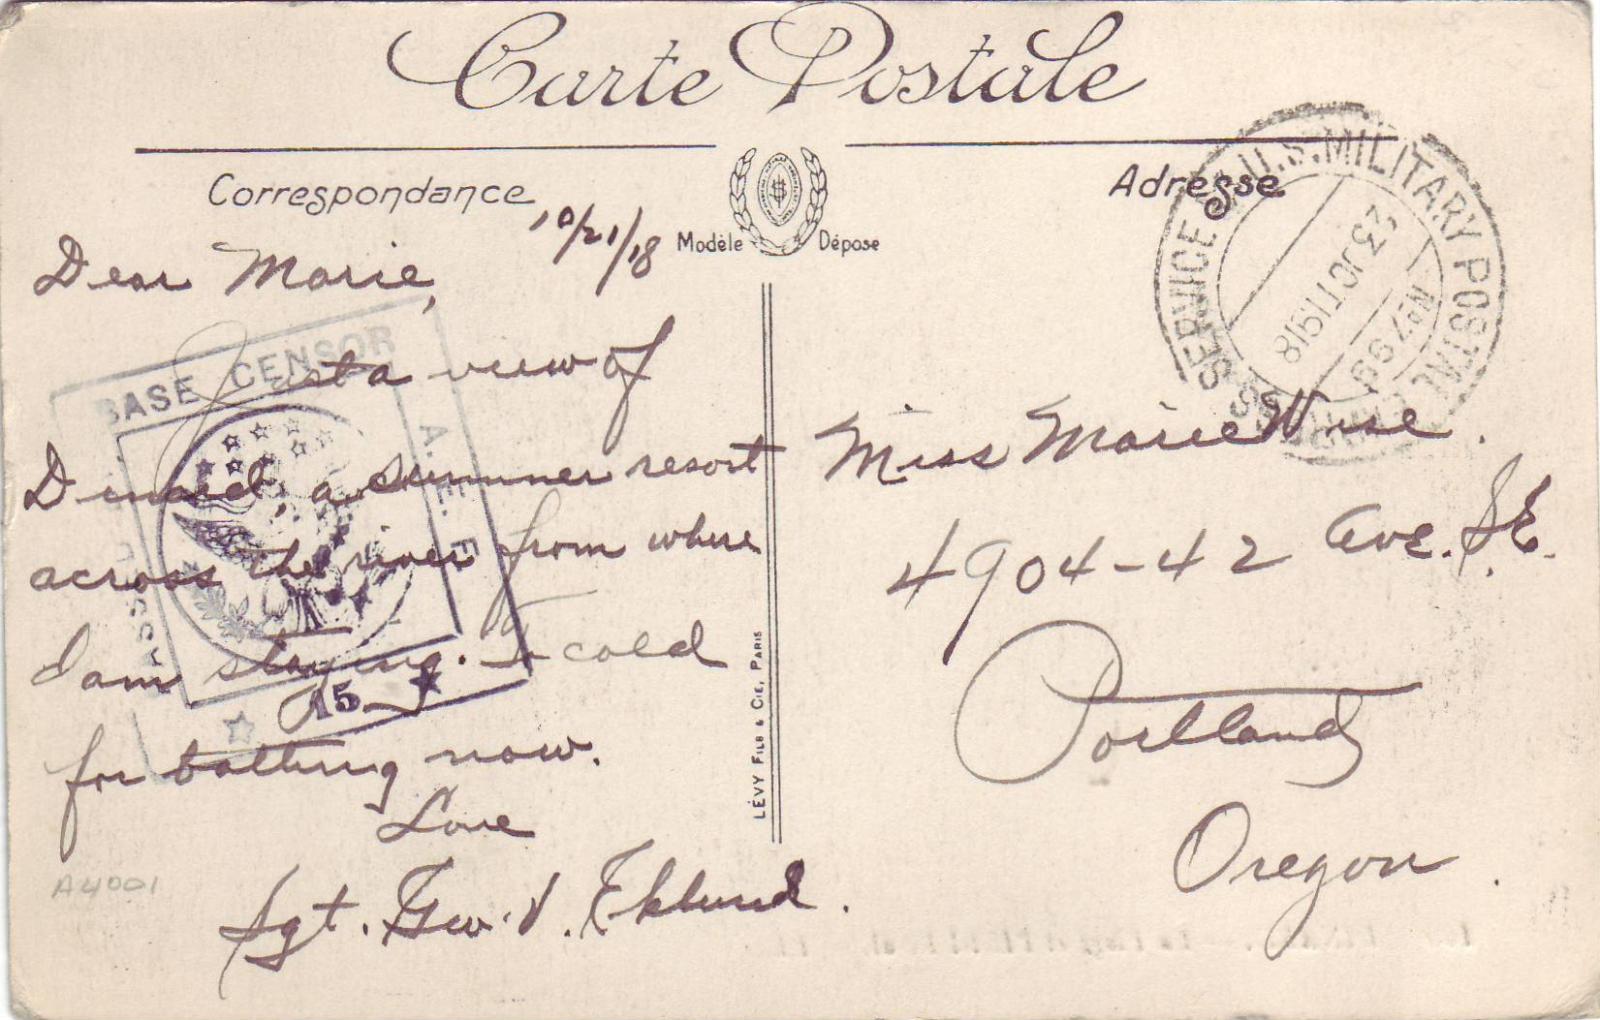 Carte Postale
Correspondance
Adresse
Modèle Dépose
10/21/18
Dear Marie,
Just a view of
Dinard, a summer resort
across the river from where
I am staying. To cold
for bathing now.
Love
Sgt. Geo. V. Eklund.
Miss Marie Wise.
4904-42 Ave. S.E.
Portland
Oregon.
LÉVY FILS & CIE, PARIS
U.S. MILITARY POSTAL
SERVICE
23 OCT 1918
No 799
BASE CENSOR
A. E. F.
15
A4001